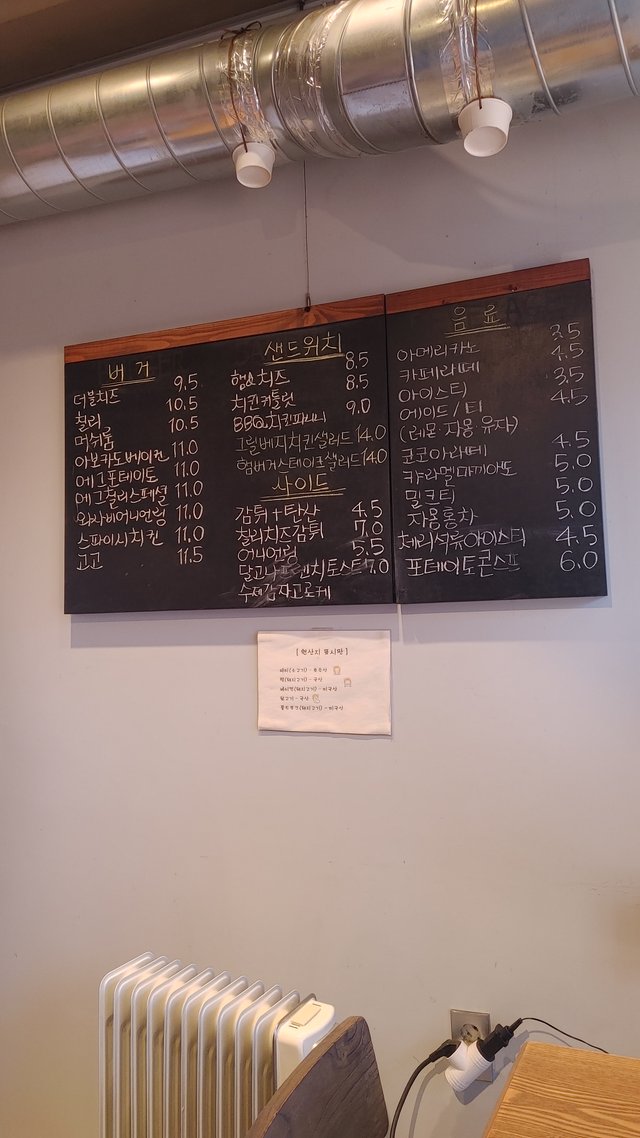 버거
더블치즈 9.5
칠리 10.5
머쉬룸 10.5
아보카도베이컨 11.0
에그포테이토 11.0
에그칠리스페셜 11.0
와사비어니언링 11.0
스파이시치킨 11.0
고고 11.5
샌드위치
햄&치즈 8.5
치킨커틀릿 8.5
BBQ치킨파니니 9.0
그릴베지치킨샐러드 14.0
햄버거스테이크샐러드 14.0
사이드
감튀+탄산 4.5
칠리치즈감튀 7.0
어니언링 5.5
달고나프렌치토스트 7.0
수제감자고로케
음료
아메리카노 3.5
카페라떼 4.5
아이스티 3.5
에이드/티 4.5
(레몬·자몽·유자)
코코아라떼 4.5
캬라멜마끼아또 5.0
밀크티 5.0
자몽홍차 5.0
체리석류아이스티 4.5
포테이토콘스프 6.0
[원산지 표시판]
패티(소고기) - 호주산
햄(돼지고기) - 국산
베이컨(돼지고기) - 미국산
닭고기 - 국산
풀드포크(돼지고기) - 미국산